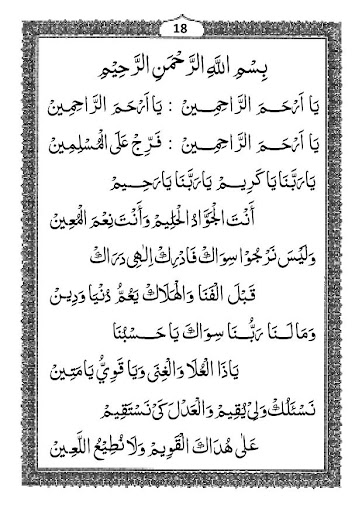 18
بِسْمِ اللَّهِ الرَّحْمَنِ الرَّحِيْمِ
يَا اَرْحَمَ الرَّاحِمِيْنَ : يَا اَرْحَمَ الرَّاحِمِيْنَ
يَا اَرْحَمَ الرَّاحِمِيْنَ : فَرِّجْ عَلَى الْمُسْلِمِيْنَ
يَارَبَّنَا يَا كَرِيْمُ يَارَبَّنَا يَارَحِيْمُ
أَنْتَ الْجَوَّادُ الْحَلِيْمُ وَأَنْتَ نِعْمَ الْمُعِيْنُ
وَلَيْسَ نَرْجُوْا سِوَاكَ فَادْرِكْ اِلٰهِي دَرَاكْ
قَبْلَ الْفَنَا وَالْهَلَاكْ يَعُمُّ دُنْيَا وَدِيْنْ
وَمَا لَنَا رَبُّنَا سِوَاكَ يَا حَسْبُنَا
يَاذَا الْعُلَا وَالْغِنَى وَيَا قَوِيُّ يَامَتِيْنُ
نَسْئَلُكْ وَلِيْ يُقِيْمُ وَالْعَدْلَ كَىْ نَسْتَقِيْمُ
عَلَى هُدَاكَ الْقَوِيْمُ وَلَا نُطِيْعُ اللَّعِيْنْ